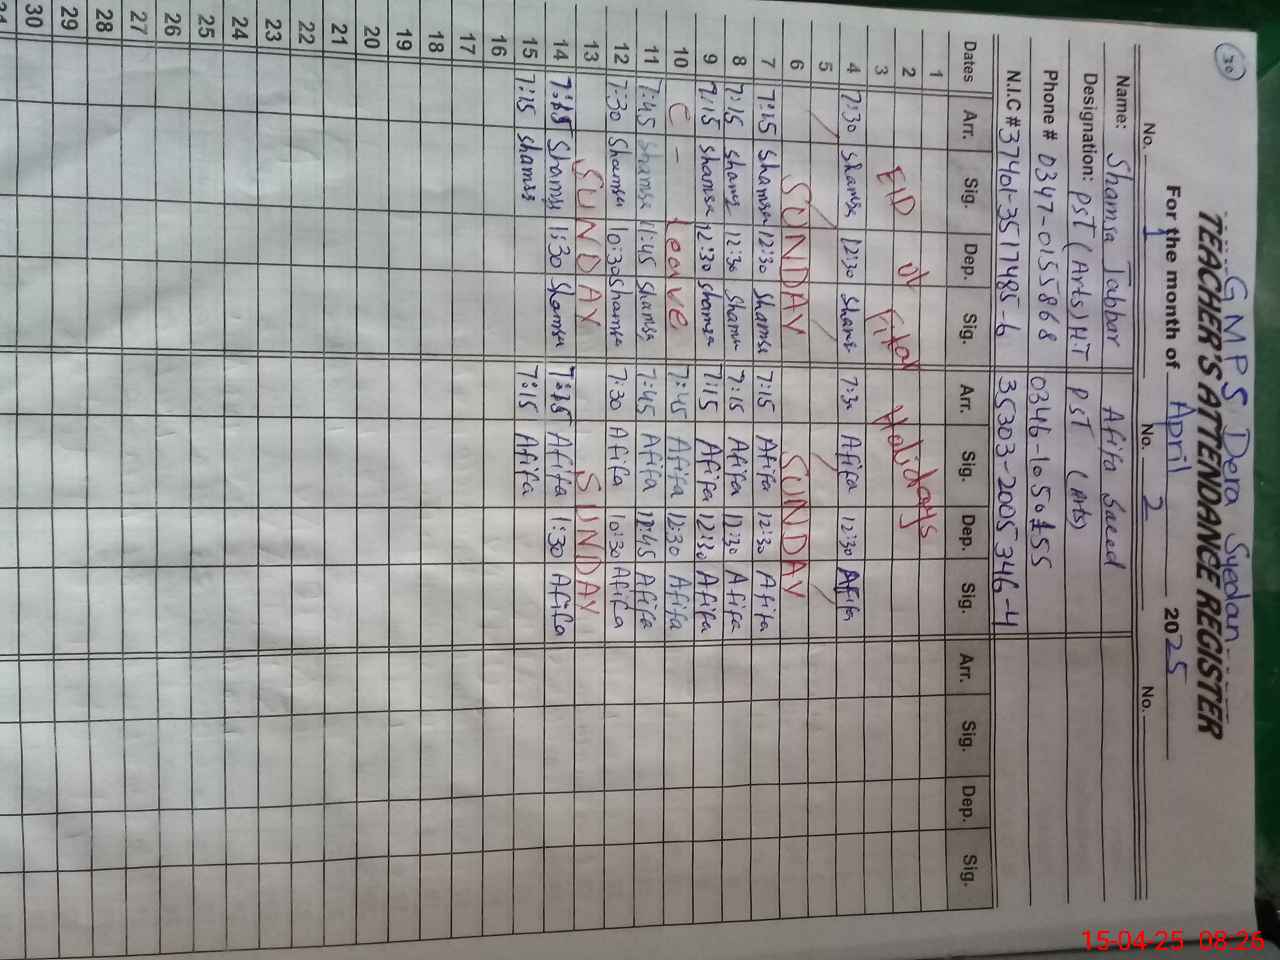 30
GMPS Dera Syedan
TEACHER'S ATTENDANCE REGISTER
For the month of April 2025
No. 1 No. 2 No.
Name: Shamsa Jabbar Afifa Saeed
Designation: PST (Arts) H.T PST (Arts)
Phone # 0347-0155868 0346-1050155
N.I.C # 37401-3517485-6 35303-2005346-4
Dates Arr. Sig. Dep. Sig. Arr. Sig. Dep. Sig. Arr. Sig. Dep. Sig.
1
2 EID ul Fitar Holidays
3
4 7:30 Shamsa 12:30 Shams 7:30 Afifa 12:30 Afifa
5
6 SUNDAY SUNDAY
7 7:15 Shamsa 12:30 Shamsa 7:15 Afifa 12:30 Afifa
8 7:15 Shams 12:30 Shamsa 7:15 Afifa 12:30 Afifa
9 7:15 Shamsa 12:30 Shamsa 7:15 Afifa 12:30 Afifa
10 C - Leave 7:45 Afifa 12:30 Afifa
11 7:45 Shamsa 11:45 Shamsa 7:45 Afifa 11:45 Afifa
12 7:30 Shamsa 10:30 Shamsa 7:30 Afifa 10:30 Afifa
13 SUNDAY SUNDAY
14 7:15 Shamsa 1:30 Shamsa 7:15 Afifa 1:30 Afifa
15 7:15 Shamsa 7:15 Afifa
16
17
18
19
20
21
22
23
24
25
26
27
28
29
30
31
15-04-25 08:26